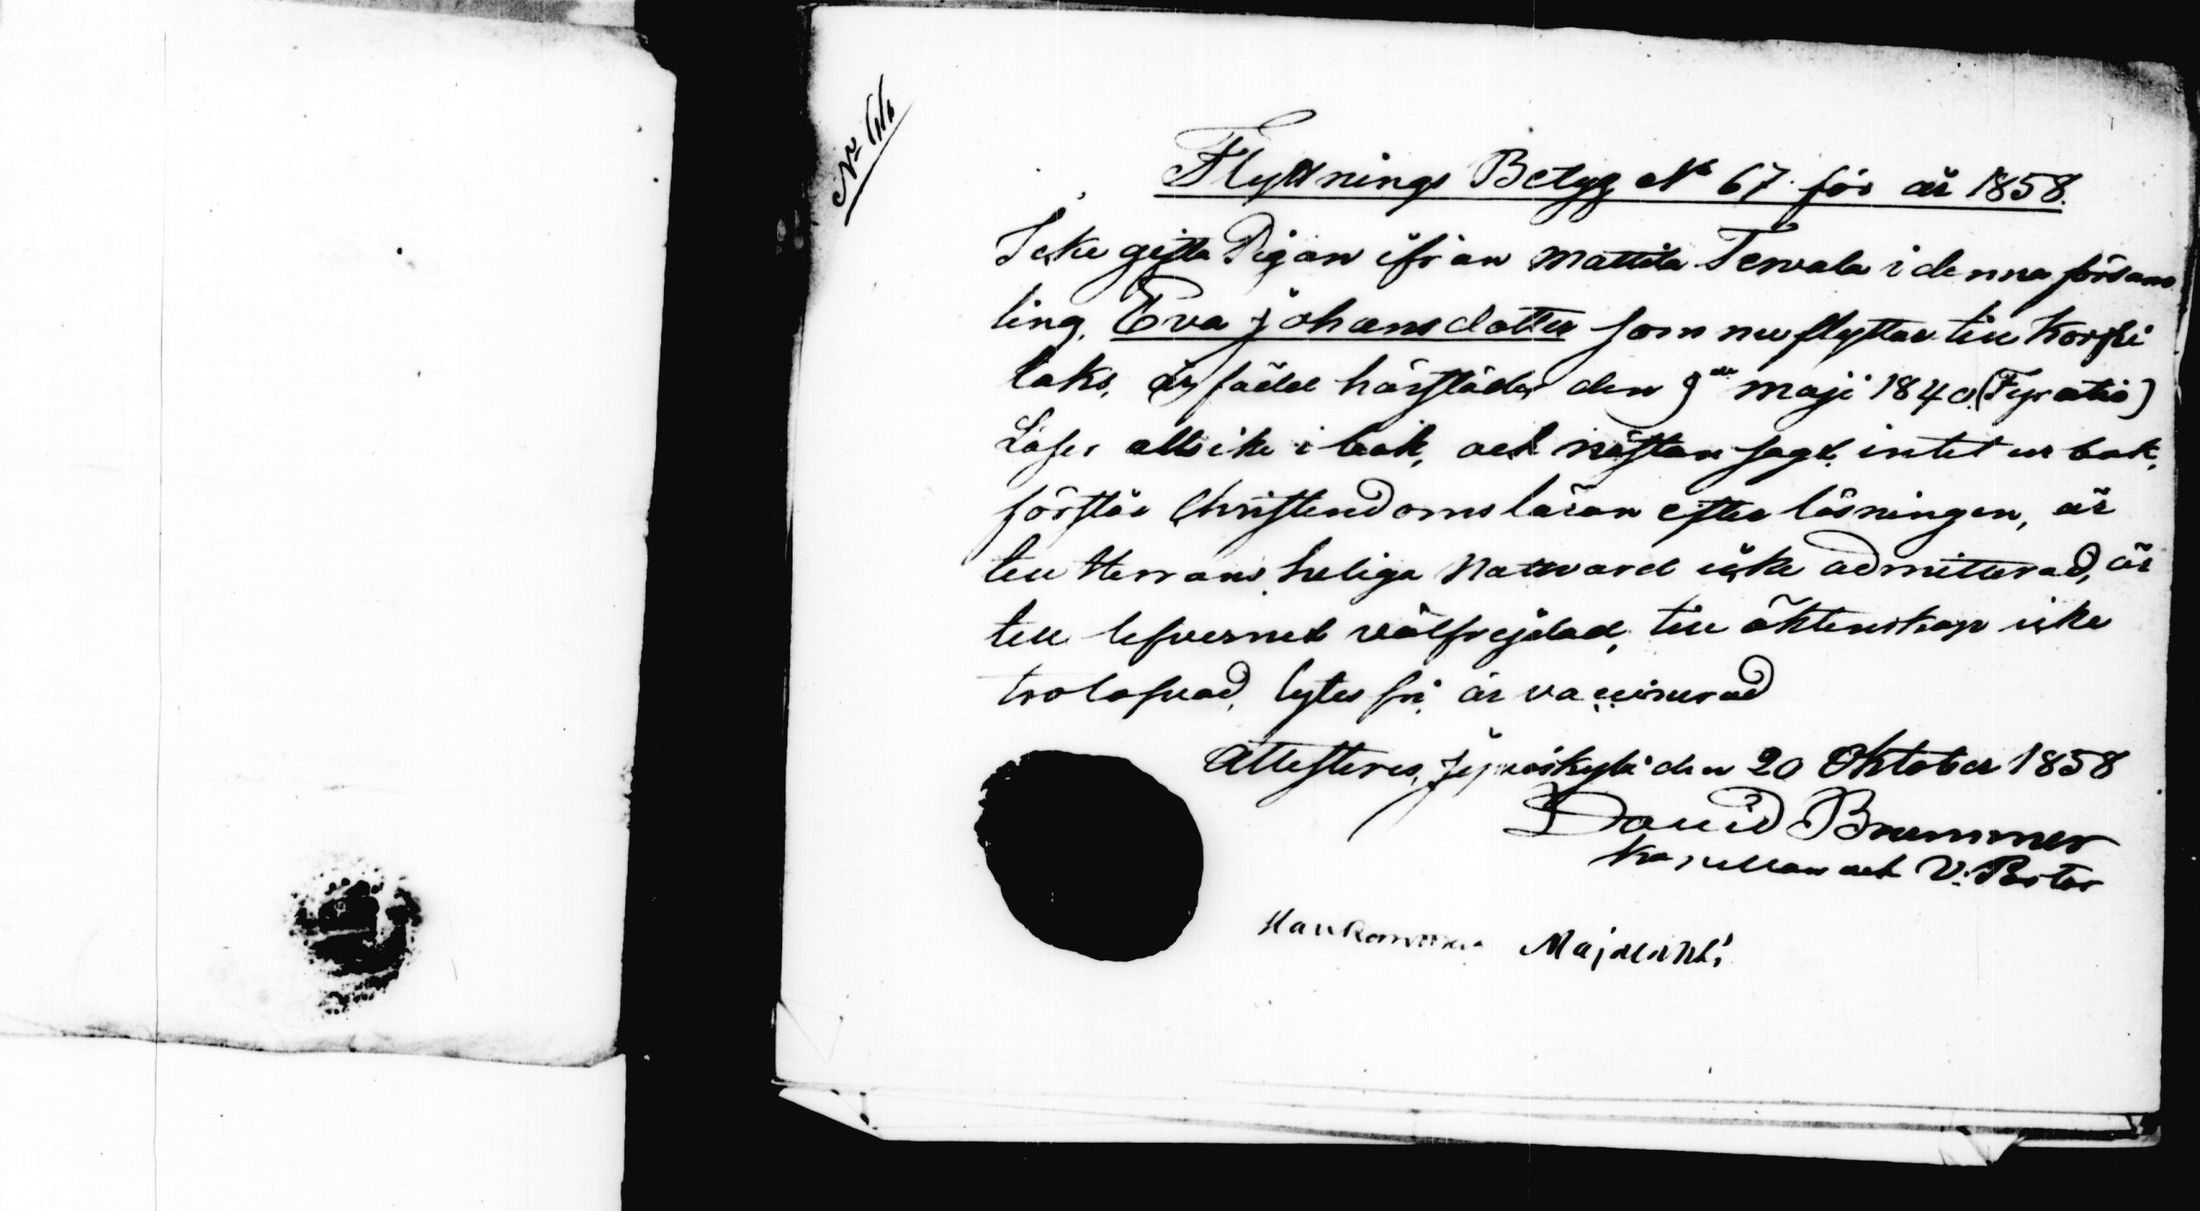 Flyttnings Betyg No 67 för år 1858.
Icke gifta Pigan ifrån Mattila Tervala i denna försam
ling, Eva Johansdotter som nu flyttar till Korpi
laks, är född härstädes den 9de Maji 1840 (Fyratio)
Läser allsicke i bok, och nästan sagt intet ur bok,
förstår Christendomsläran efter läsningen, är
till Herrans heliga Nattvard icke admitterad, är
till lefvernet välfrejdad, till äktenskap icke
trolofvad, lytes fri, är vaccinerad
Attesteres, Jyväskylä den 20 Oktober 1858
David Brummer
Kapellan och V. Pastor